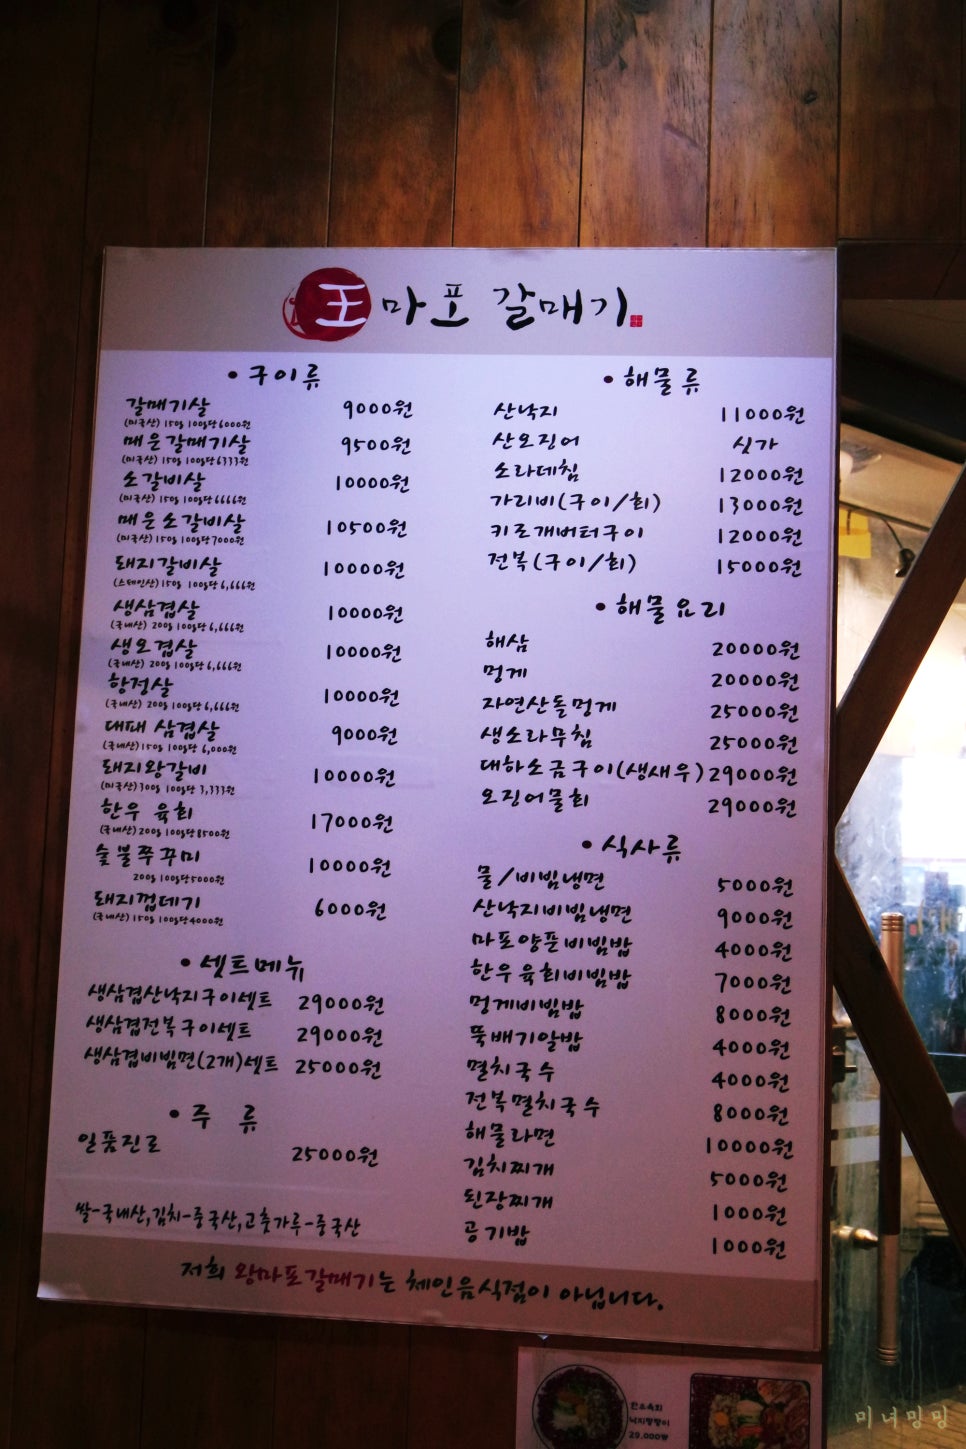 王마포갈매기
• 구이류
갈매기살 9000원
(미국산) 150g 100g당6000원
매운갈매기살 9500원
(미국산) 150g 100g당6333원
소갈비살 10000원
(미국산) 150g 100g당6666원
매운소갈비살 10500원
(미국산) 150g 100g당7000원
돼지갈비살 10000원
(스페인산) 150g 100g당6,666원
생삼겹살 10000원
(국내산) 200g 100g당6,666원
생오겹살 10000원
(국내산) 200g 100g당6,666원
항정살 10000원
(국내산) 200g 100g당6,666원
대패 삼겹살 9000원
(국내산) 150g 100g당 6,000원
돼지왕갈비 10000원
(미국산) 300g 100g당 3,333원
한우 육회 17000원
(국내산) 200g 100g당8500원
숯불쭈꾸미 10000원
200g 100g당5000원
돼지껍데기 6000원
(국내산) 150g 100g당4000원
• 셋트메뉴
생삼겹산낙지구이셋트 29000원
생삼겹전복구이셋트 29000원
생삼겹비빔면(2개)셋트 25000원
• 주 류
일품진로 25000원
쌀-국내산,김치-중국산,고춧가루-중국산
• 해물류
산낙지 11000원
산오징어 싯가
소라데침 12000원
가리비(구이/회) 13000원
키로개버터구이 12000원
전복(구이/회) 15000원
• 해물요리
해삼 20000원
멍게 20000원
자연산돌멍게 25000원
생소라무침 25000원
대하소금구이(생새우) 29000원
오징어물회 29000원
• 식사류
물/비빔냉면 5000원
산낙지비빔냉면 9000원
마포양푼비빔밥 4000원
한우육회비빔밥 7000원
멍게비빔밥 8000원
뚝배기알밥 4000원
멸치국수 4000원
전복멸치국수 8000원
해물라면 10000원
김치찌개 5000원
된장찌개 1000원
공기밥 1000원
저희 왕마포갈매기는 체인음식점이 아닙니다.
29,000원
미녀밍밍